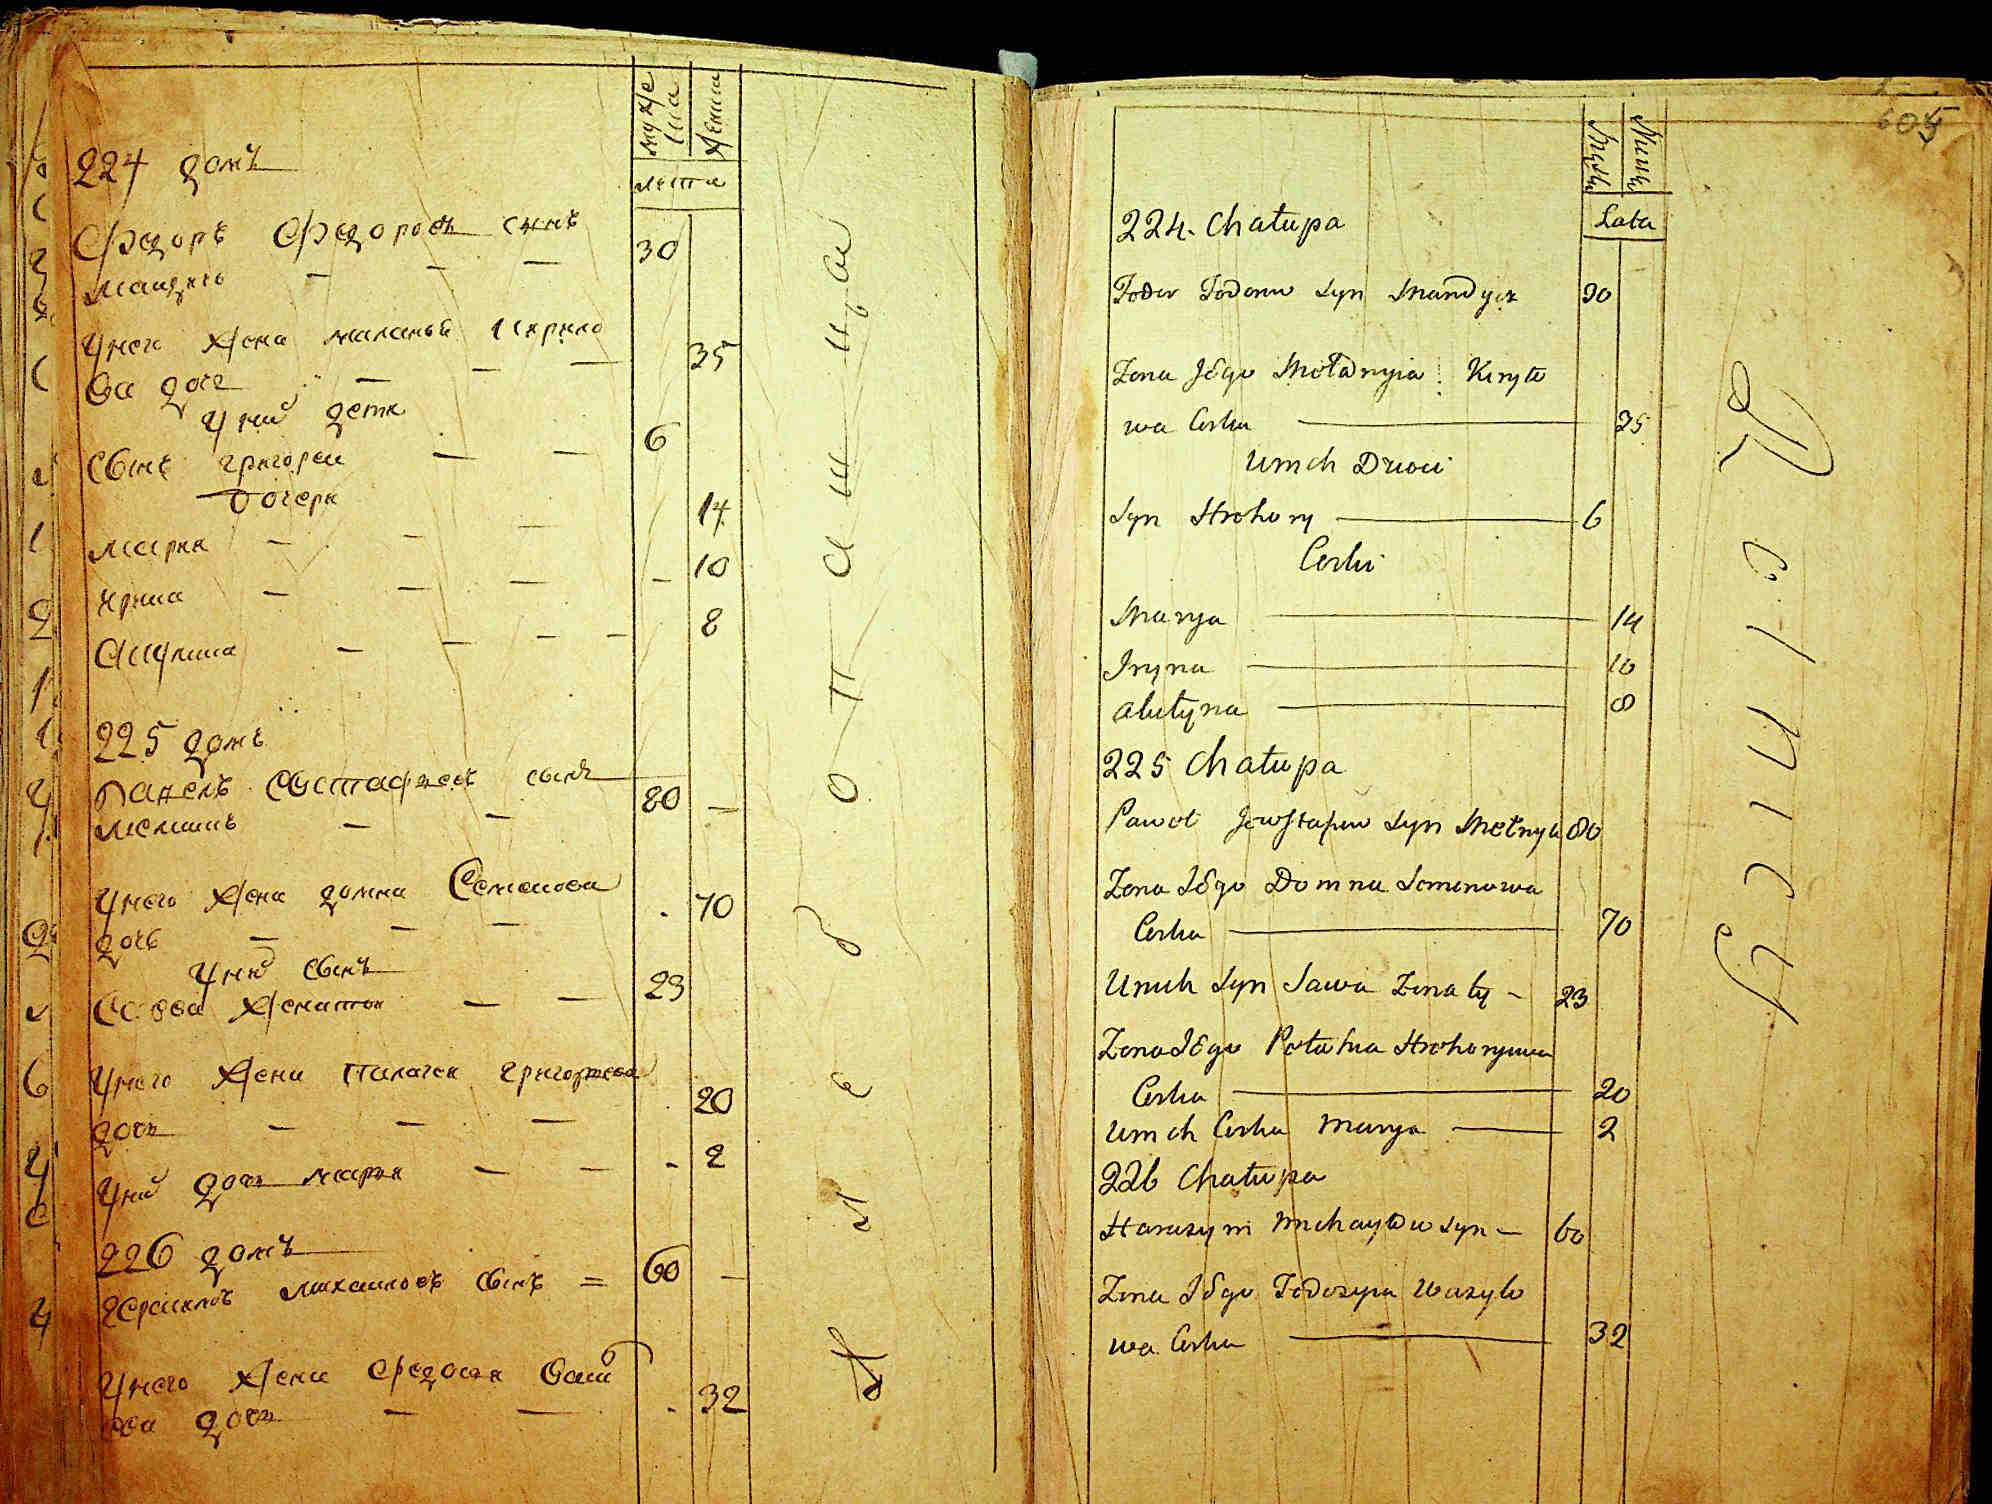 мужеска
женска
лета
224 домъ
Фѣдоръ Фѣдоровъ сынъ 30
Мандичъ
У него жена Маланья Кирило 35
ва дочь
У них дети
Сынъ Григореи 6
дочери
Мария 14
Ирина 10
Акулина 8
225 домъ
Павелъ Евстафиевъ сынъ 80
Мелникъ
У него жена Домна Семенова 70
дочь
У них сынъ
Савва женатои 23
У него жена Палагея Григориева 20
дочь
У них дочь Мария 2
226 домъ
Герасимъ Михаиловъ сынъ = 60
У него жена Федосия Васи
ева дочь 32
605
Lata
224. Chałupa
Todor Todorow Syn Mandycz 30
Zona Jego Mełanyia Kiryło
wa Corka 35
U nich Dzieci
Syn Hrehory 6
Corki
Marya 14
Iryna 10
Akułyna 8
225 Chałupa
Paweł Jewstafiew Syn Melnyk 80
Zona Jego Domna Semenowa
Corka 70
U nich Syn Sawa Zonaty 23
Zona Jego Pałahia Hrehorijewa
Corka 20
U nich Corka Marya 2
226 Chałupa
Harasym Michayłow Syn 60
Zona Jego Todosyia Wasylo
wa Corka 32